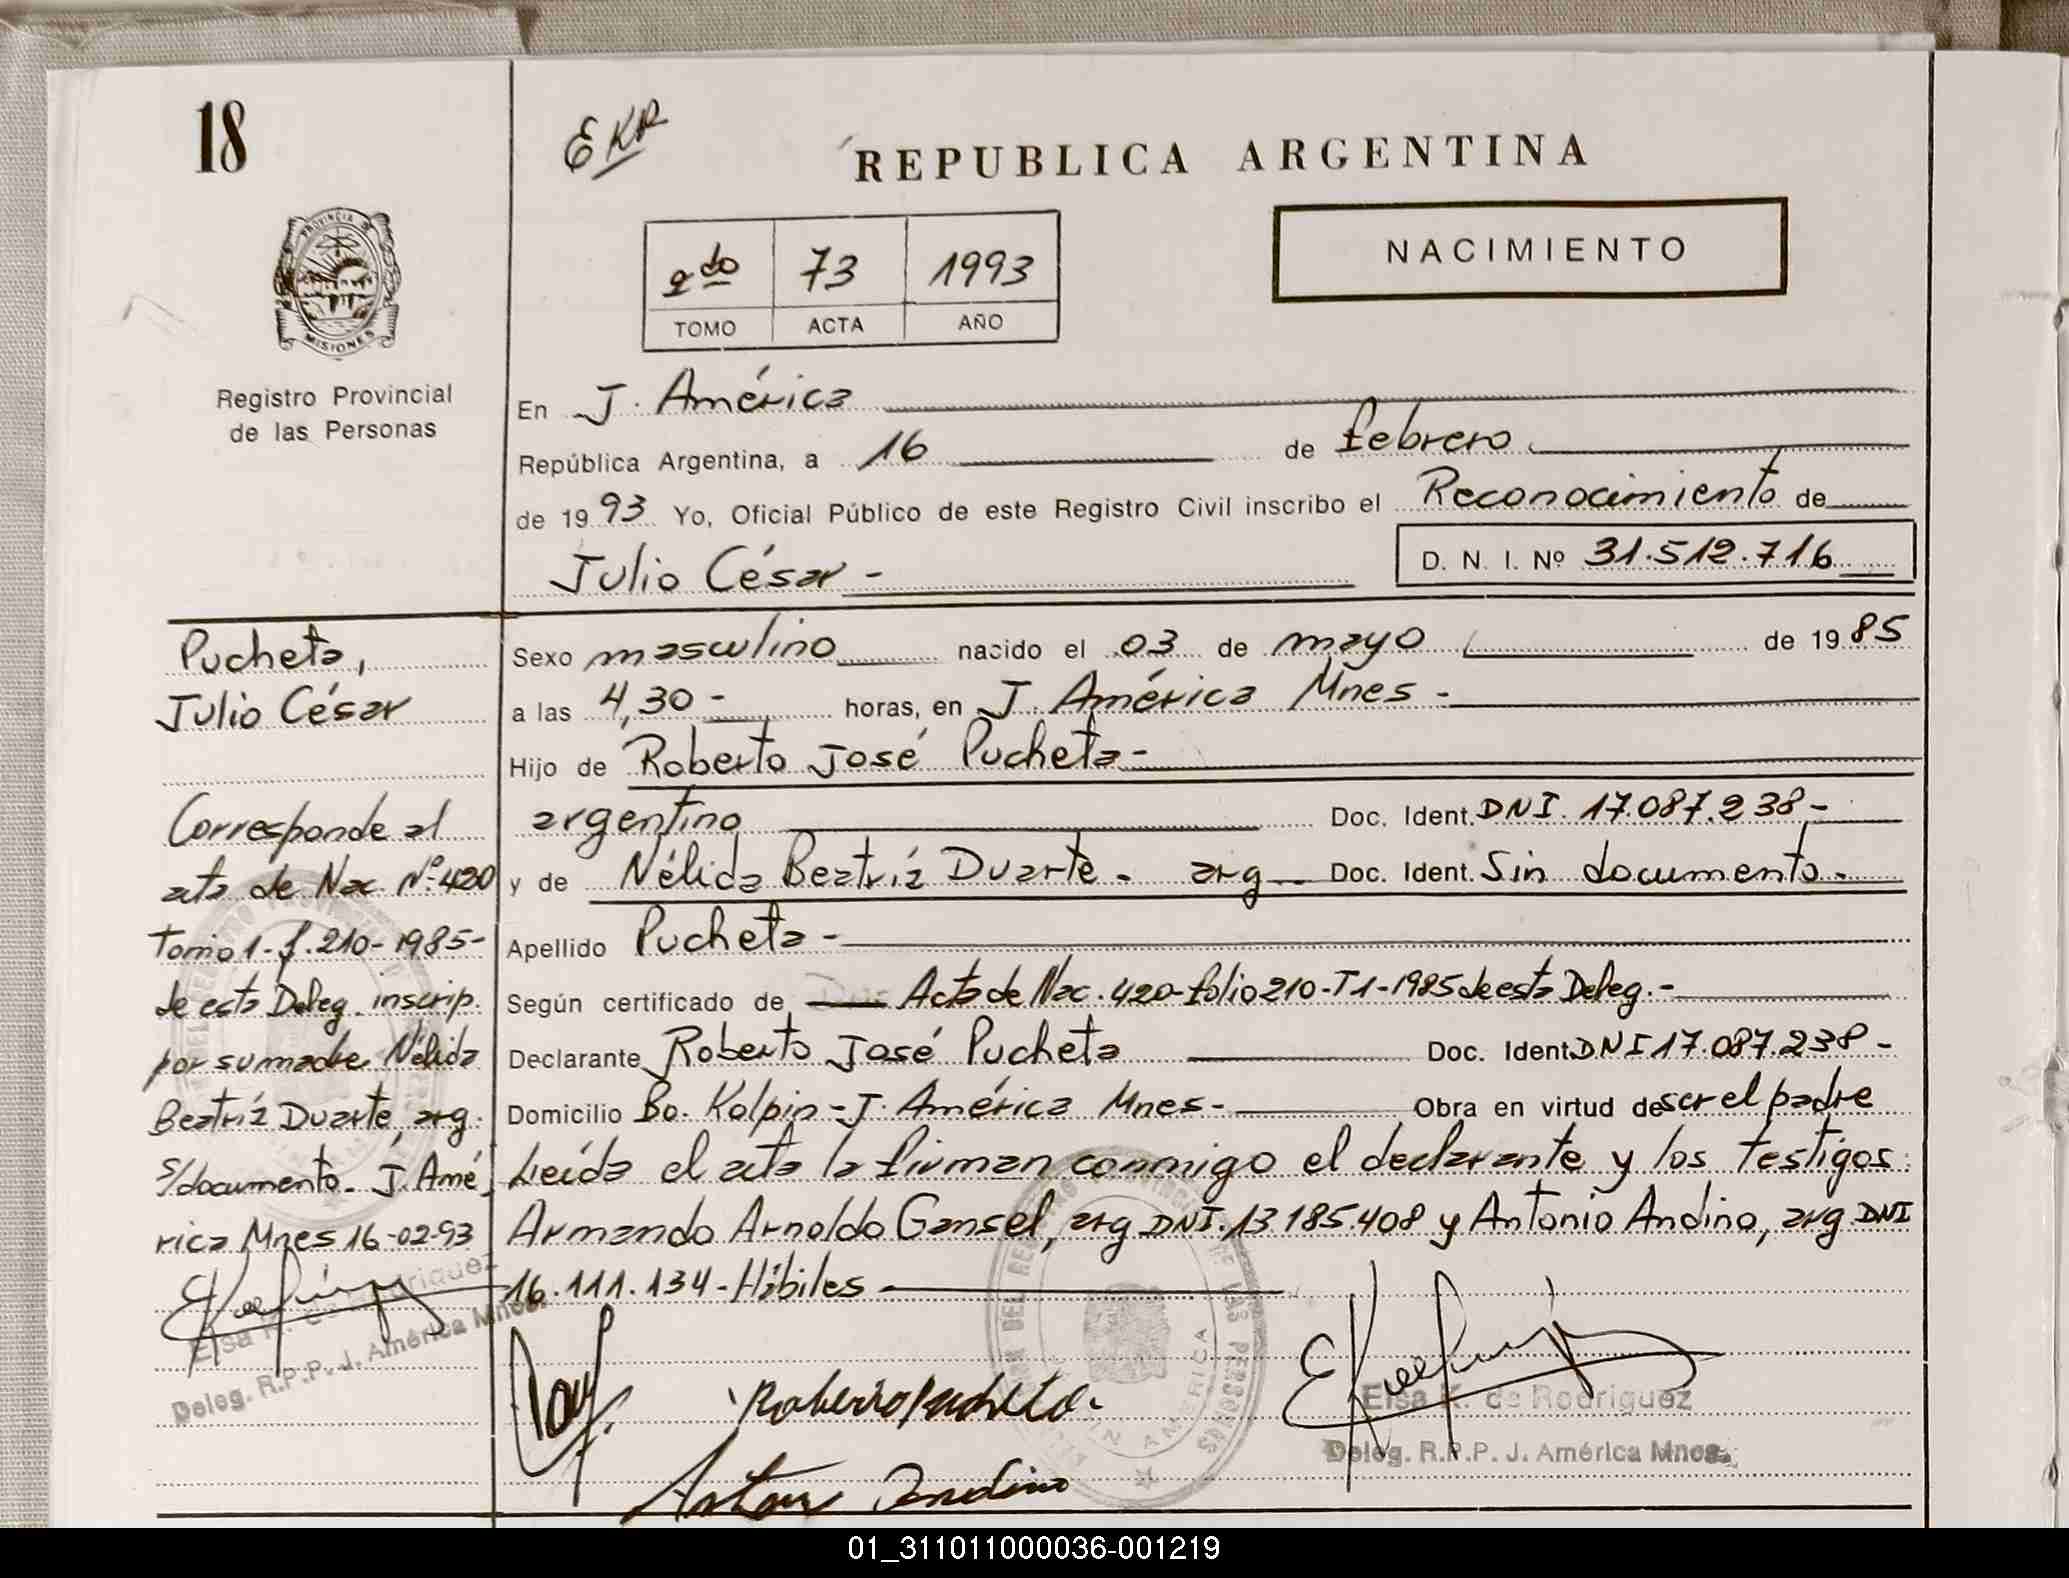 18
EKR
REPUBLICA ARGENTINA
2do 73 1993
TOMO ACTA AÑO
NACIMIENTO
PROVINCIA DE
MISIONES
Registro Provincial
de las Personas
En J. América
República Argentina, a 16 de febrero
de 1993 Yo, Oficial Público de este Registro Civil inscribo el Reconocimiento de
Julio César - D. N. I. Nº 31.512.716
Pucheta,
Julio César
Corresponde al
acta de Nac. Nº 420
Tomo 1-f.210-1985-
de esta Deleg. inscrip.
por su madre Nélida
Beatríz Duarte, arg.
s/documento. J. Amé
rica Mnes 16-02-93
Elsa K. de Rodriguez
Deleg. R.P.P. J. América Mnes.
Sexo masculino nacido el 03 de mayo de 1985
a las 4,30 - horas, en J. América Mnes -
Hijo de Roberto José Pucheta -
argentino Doc. Ident. DNI. 17.087.238-
y de Nélida Beatríz Duarte - arg Doc. Ident. Sin documento.
Apellido Pucheta -
Según certificado de Acta de Nac. 420-folio 210-T1-1985 de esta Deleg.-
Declarante Roberto José Pucheta Doc. Ident. DNI 17.087.238 -
Domicilio Bo. Kolpin - J. América Mnes- Obra en virtud de ser el padre
Leída el acta la firman conmigo el declarante y los testigos:
Armando Arnoldo Gansel, arg DNI. 13.185.408 y Antonio Andino, arg. DNI
16.111.134 - Hábiles
Roberto Pucheta.
Elsa K. de Rodriguez
Deleg. R.P.P. J. América Mnes.
01_311011000036-001219